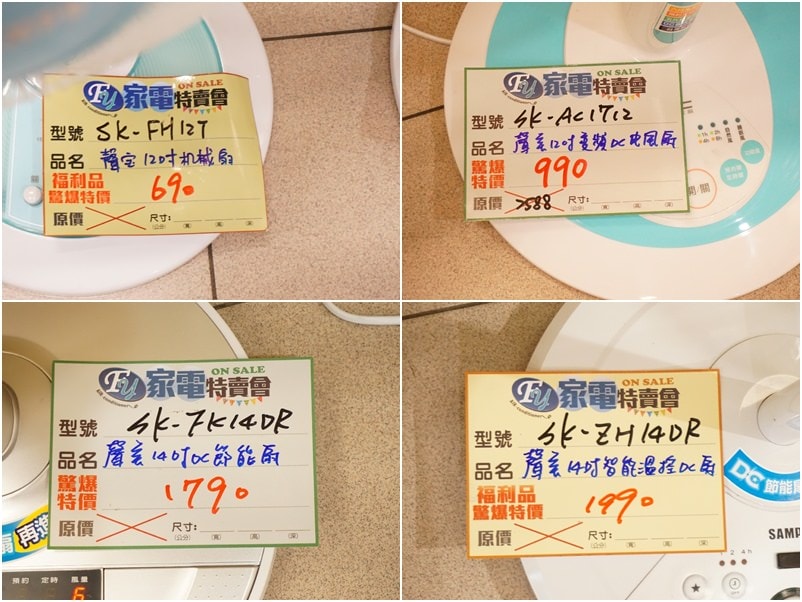 ON SALE
Fu 家電特賣會
型號 SK-FH12T
品名 聲宝12吋机械扇
福利品
驚爆特價 690
原價 尺寸:
(公分) (寬) (高) (深)
ON SALE
Fu 家電特賣會
型號 SK-AC1712
品名 聲宝12吋變頻DC
驚爆
特價 990
原價 尺寸:
(公分) (寬) (高) (深)
開/關
ON SALE
Fu 家電特賣會
型號 SK-FK14DR
品名 聲宝14吋DC節能扇
驚爆
特價 1790
原價 尺寸:
(公分) (寬) (高) (深)
扇 再進
預約 定時 風量
6
ON SALE
Fu 家電特賣會
型號 SK-ZH14DR
品名 聲宝14吋智能溫控DC扇
福利品
驚爆特價 1990
原價 尺寸:
(公分) (寬) (高) (深)
DC節能
SAMP
1 2 4h